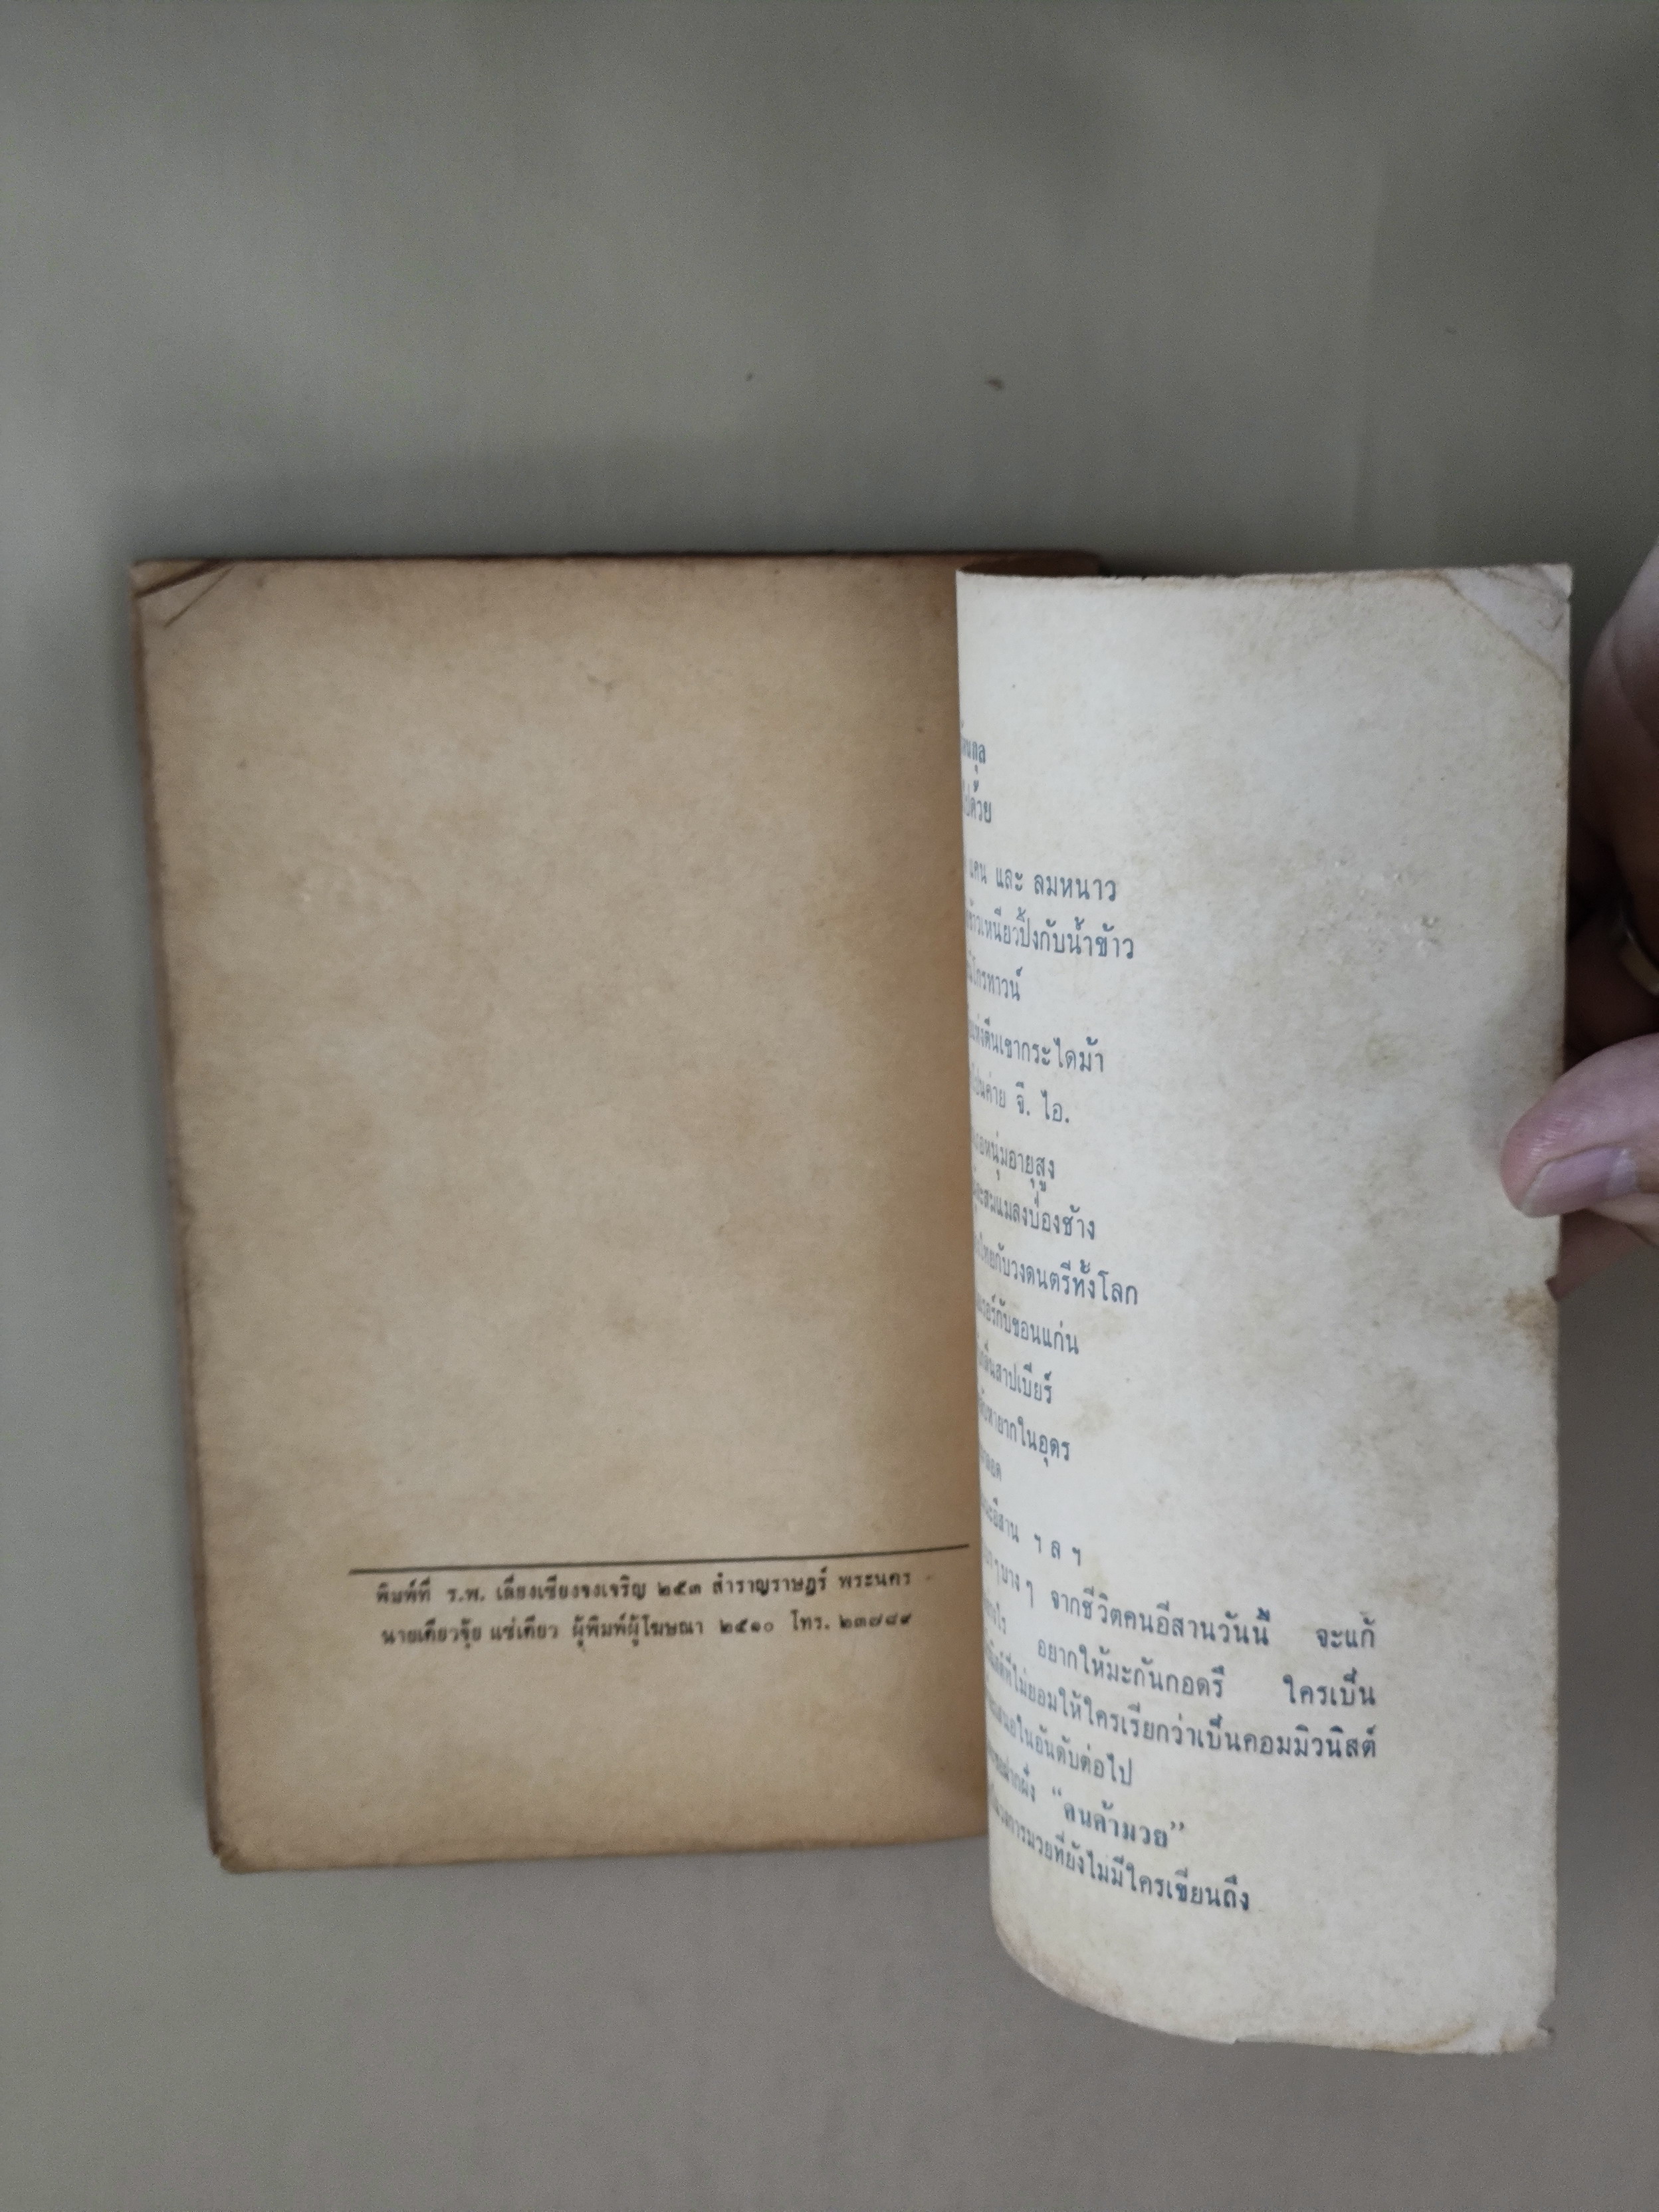 พิมพ์ที่ ร.พ. เลี่ยงเซียงจงเจริญ ๒๕๓ สำราญราษฎร์ พระนคร
นายเคียวจุ้ย แซ่เตียว ผู้พิมพ์ผู้โฆษณา ๒๕๑๐ โทร. ๒๓๗๘๙
กุล
ไปด้วย
แคน และ ลมหนาว
ข้าวเหนียวปิ้งกับน้ำข้าว
นิโกรทาวน์
แห่งตีนเขากระไดม้า
ค่าย จี. ไอ.
หนุ่มอายุสูง
สะสมแมลงป่องช้าง
ไทยกับวงดนตรีทั้งโลก
กับขอนแก่น
กลิ่นสาปเบียร์
หายากในอุดร
อีสาน ฯ ล ฯ
บาง ๆ จากชีวิตคนอีสานวันนี้ จะแก้
อยากให้มะกันกอดรึ ใครเป็น
ที่ไม่ยอมให้ใครเรียกว่าเป็นคอมมิวนิสต์
เสนอในอันดับต่อไป
"คนค้ามวย"
การมวยที่ยังไม่มีใครเขียนถึง